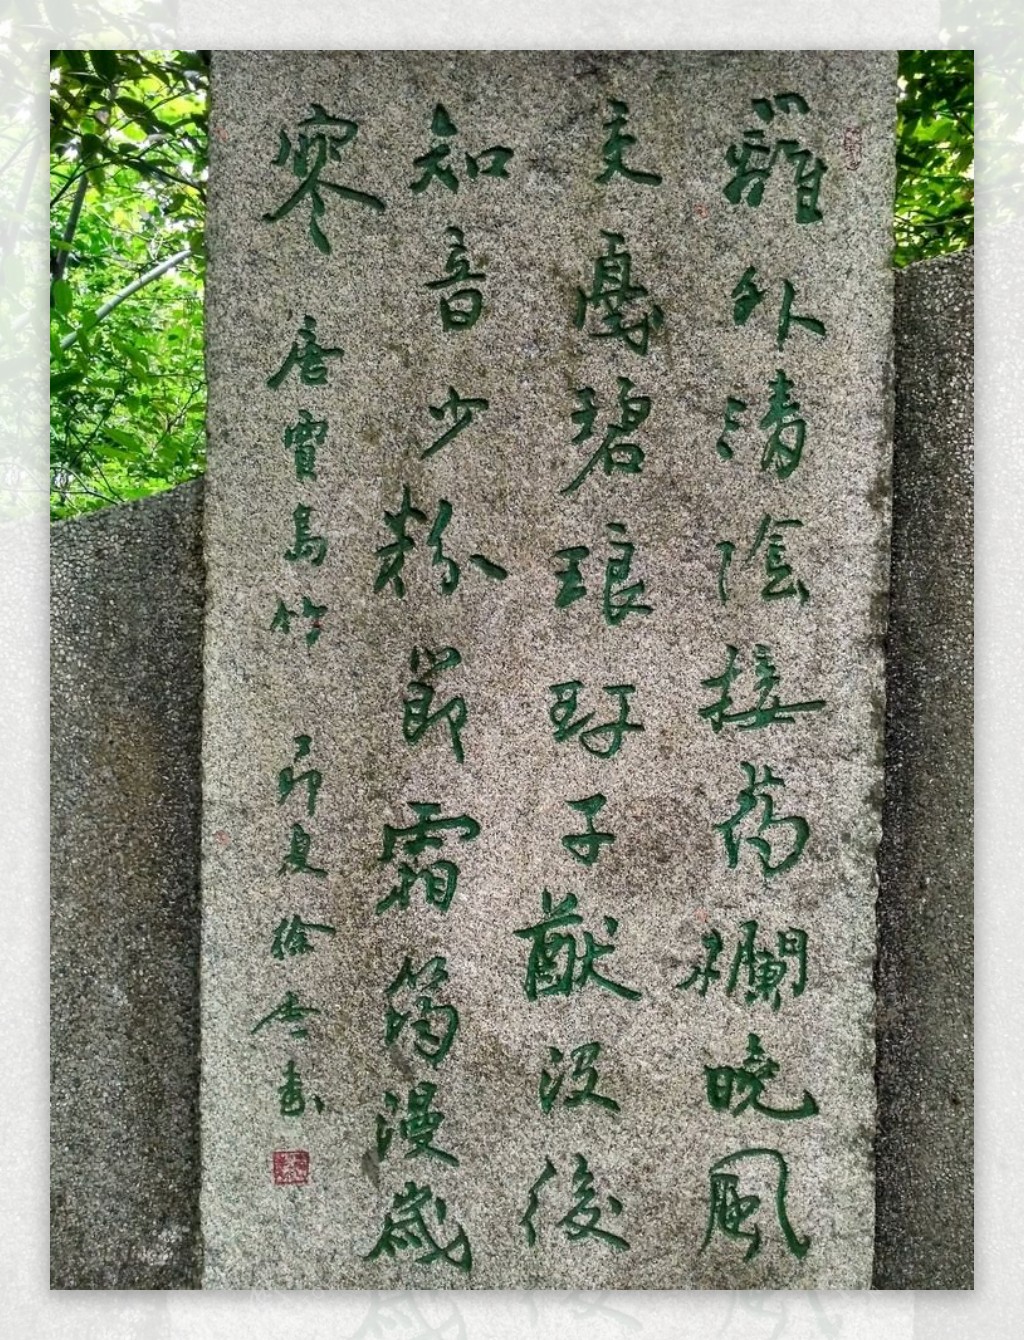 籬外清陰接药欄曉風
交戛碧琅玕子猷没後
知音少粉節霜筠漫歲
寒 唐賈島竹 己卯夏徐書